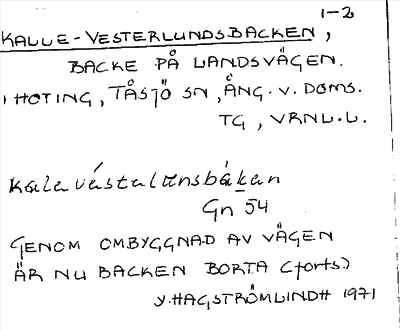 1-2
KALLE-VESTERLUNDSBACKEN,
BACKE PÅ LANDSVÄGEN.
I HOTING, TÅSJÖ SN, ÅNG. V. DOMS.
TG, VRNL.L.
kalavéstalunsbákan
Gn 54
GENOM OMBYGGNAD AV VÄGEN
ÄR NU BACKEN BORTA (forts.)
Y. HAGSTRÖM LINDH 1971